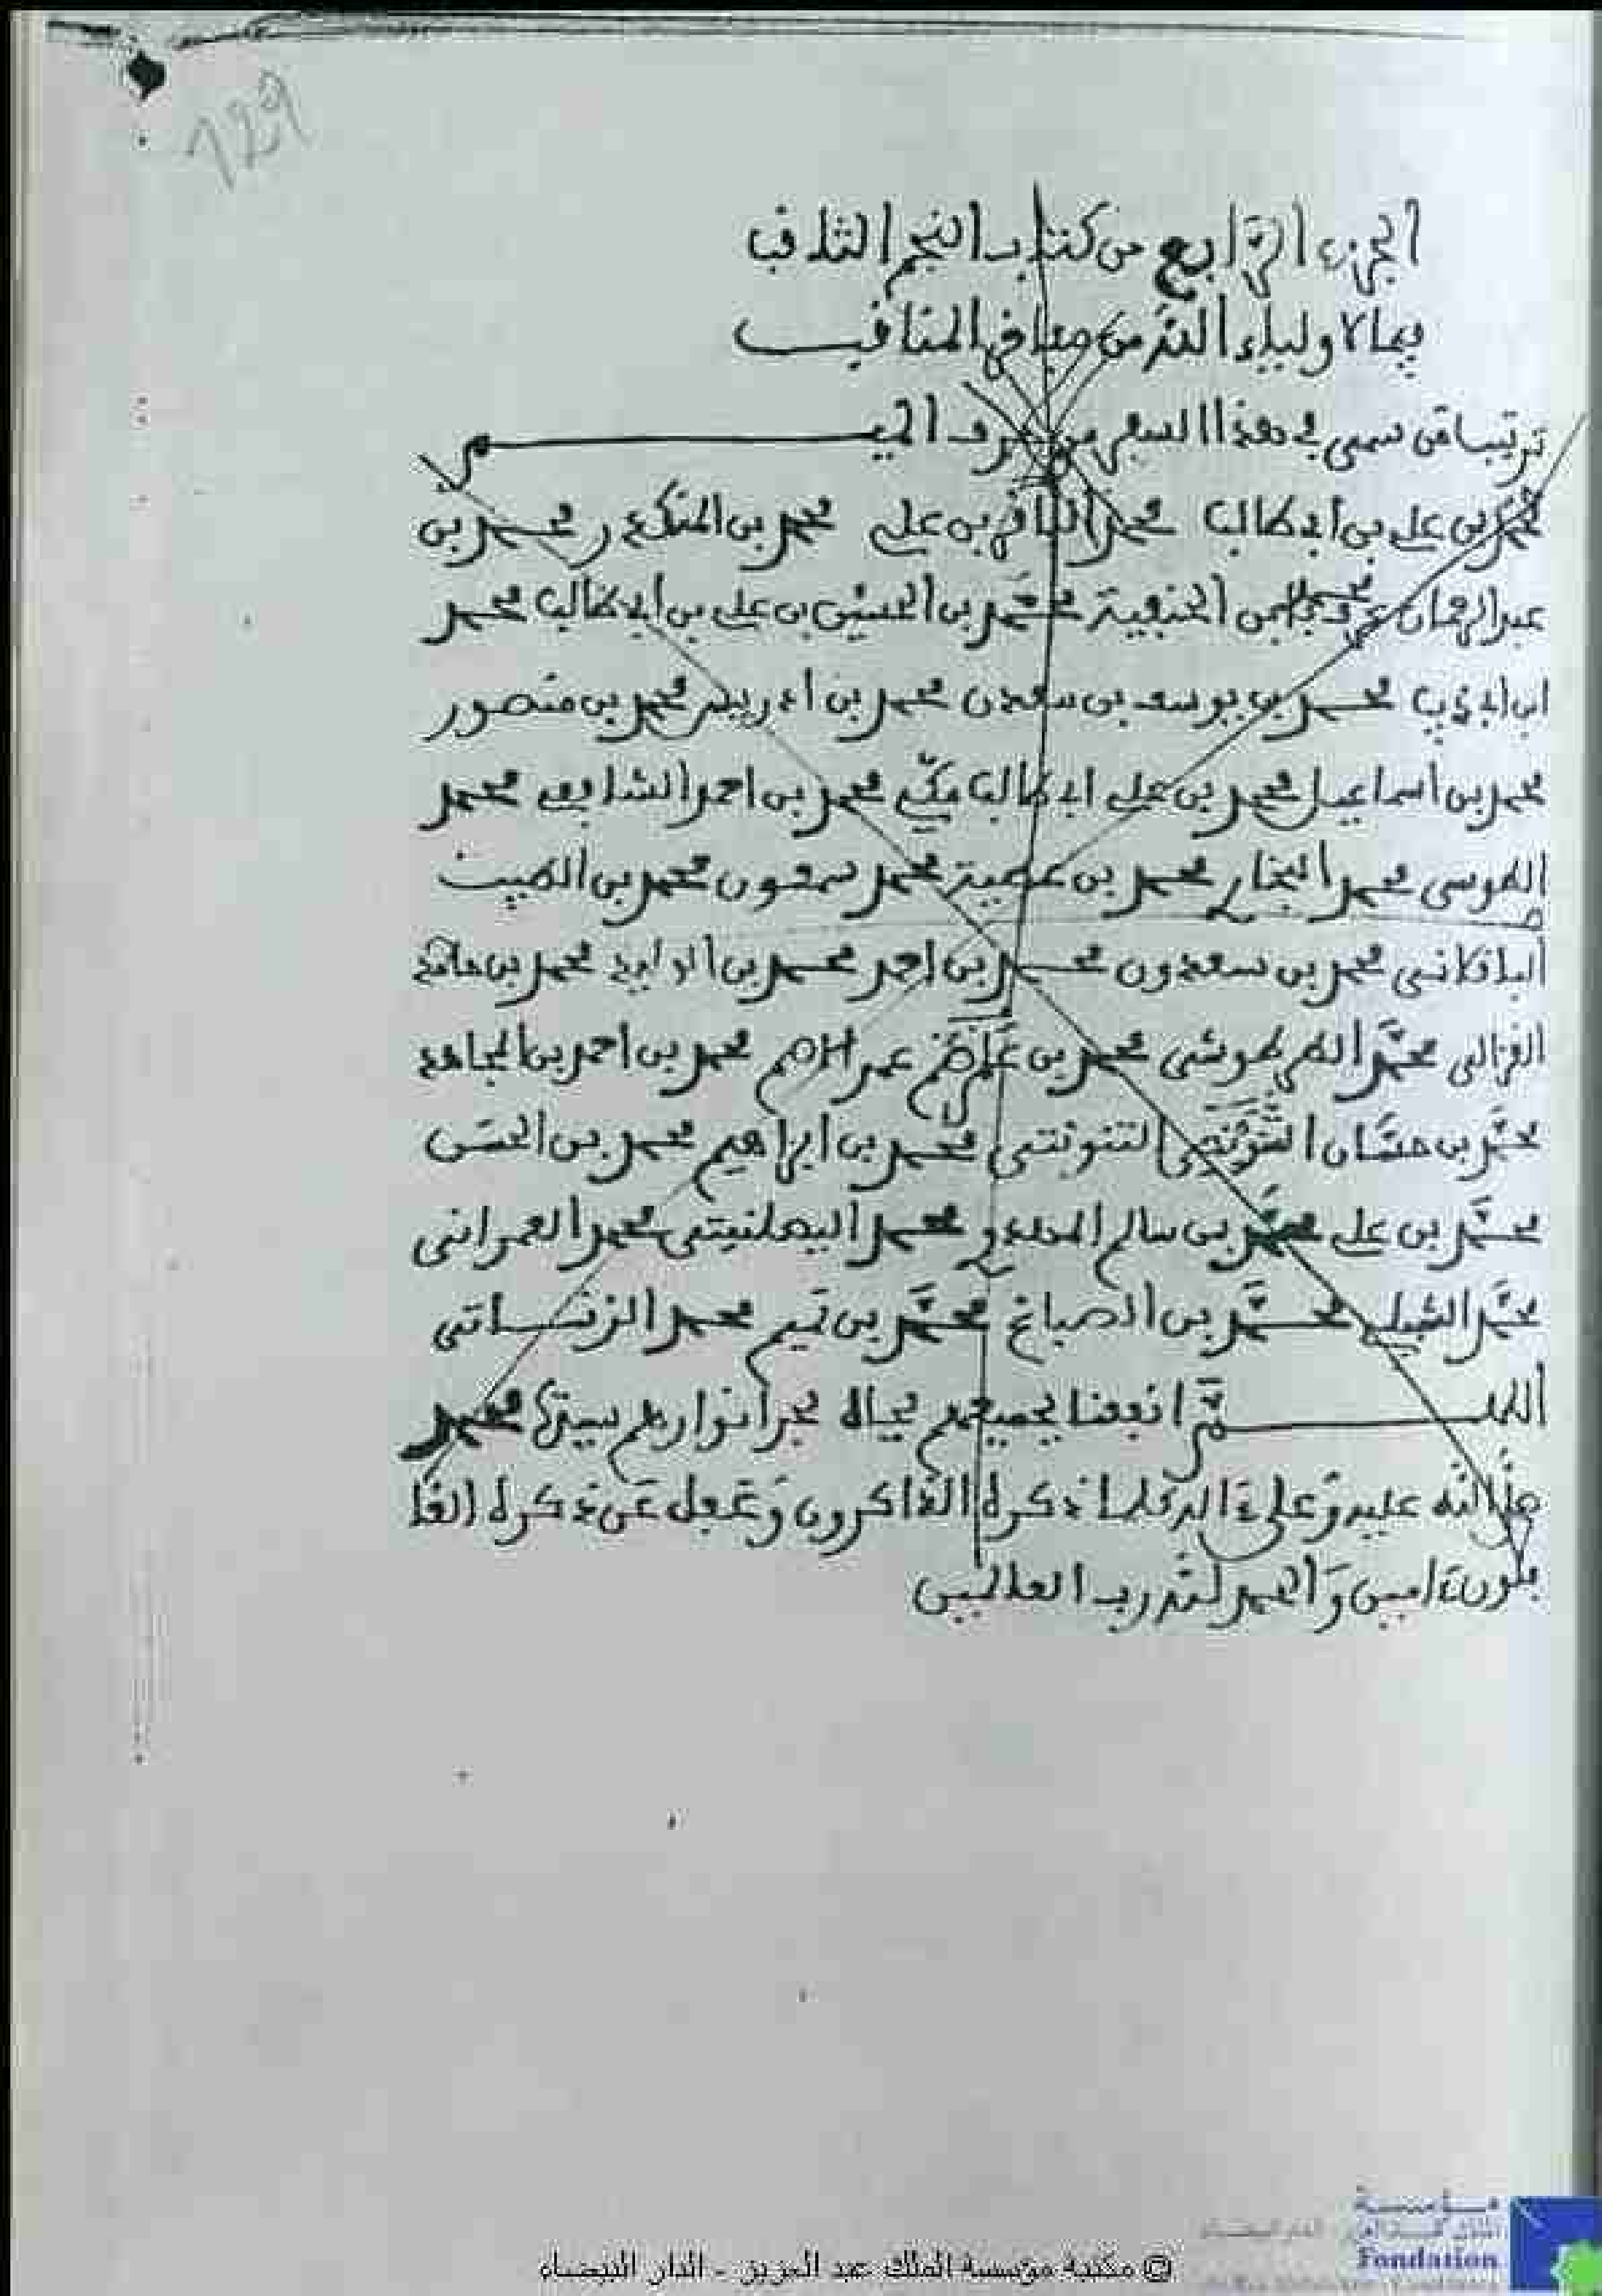 129
الجزء الرّابع من كتاب النجم الثاقب
فيما لاولياء الله من مفاخر المناقب
ترتيب من سمي في هذا السفر من حرف الميم
محمد بن علي بن ابي طالب محمد الباقر بن علي محمد بن المنكدر محمد بن
عبد الرحمان محمد بن الحنفية محمد بن الحسين بن علي بن ابي طالب محمد
ابن ابي ذيب محمد بن يوسف بن سعدن محمد بن ادريس محمد بن منصور
محمد بن اسماعيل محمد بن علي ابي طالب مكي محمد بن احمد الشافعي محمد
الطوسي محمد النجار محمد بن عطية محمد سمعون محمد بن الطيب
الباقلاني محمد بن سعدون محمد بن احمد محمد بن الوليد محمد بن حامد
الغزالي محمّد الطرطوشي محمد بن عمر الاصم محمد بن احمد بن المجاهد
محمّد بن حسّان التونتي محمد بن ابراهيم محمد بن الحسن
محمّد بن علي محمّد بن سالم محمد محمد العمراني
محمّد الشبلي محمّد بن الصباغ محمّد بن تميم محمد الزناتي
اللهمّ انفعنا بجميعهم بجاه بحر انوارهم سيدنا محمد
صلى الله عليه وعلى ءاله كلما ذكره الذاكرون وغفل عن ذكره الغا
فلون ءامين والحمد لله رب العالمين
مؤسسة
Fondation
© مكتبة مؤسسة الملك عبد العزيز - الدار البيضاء